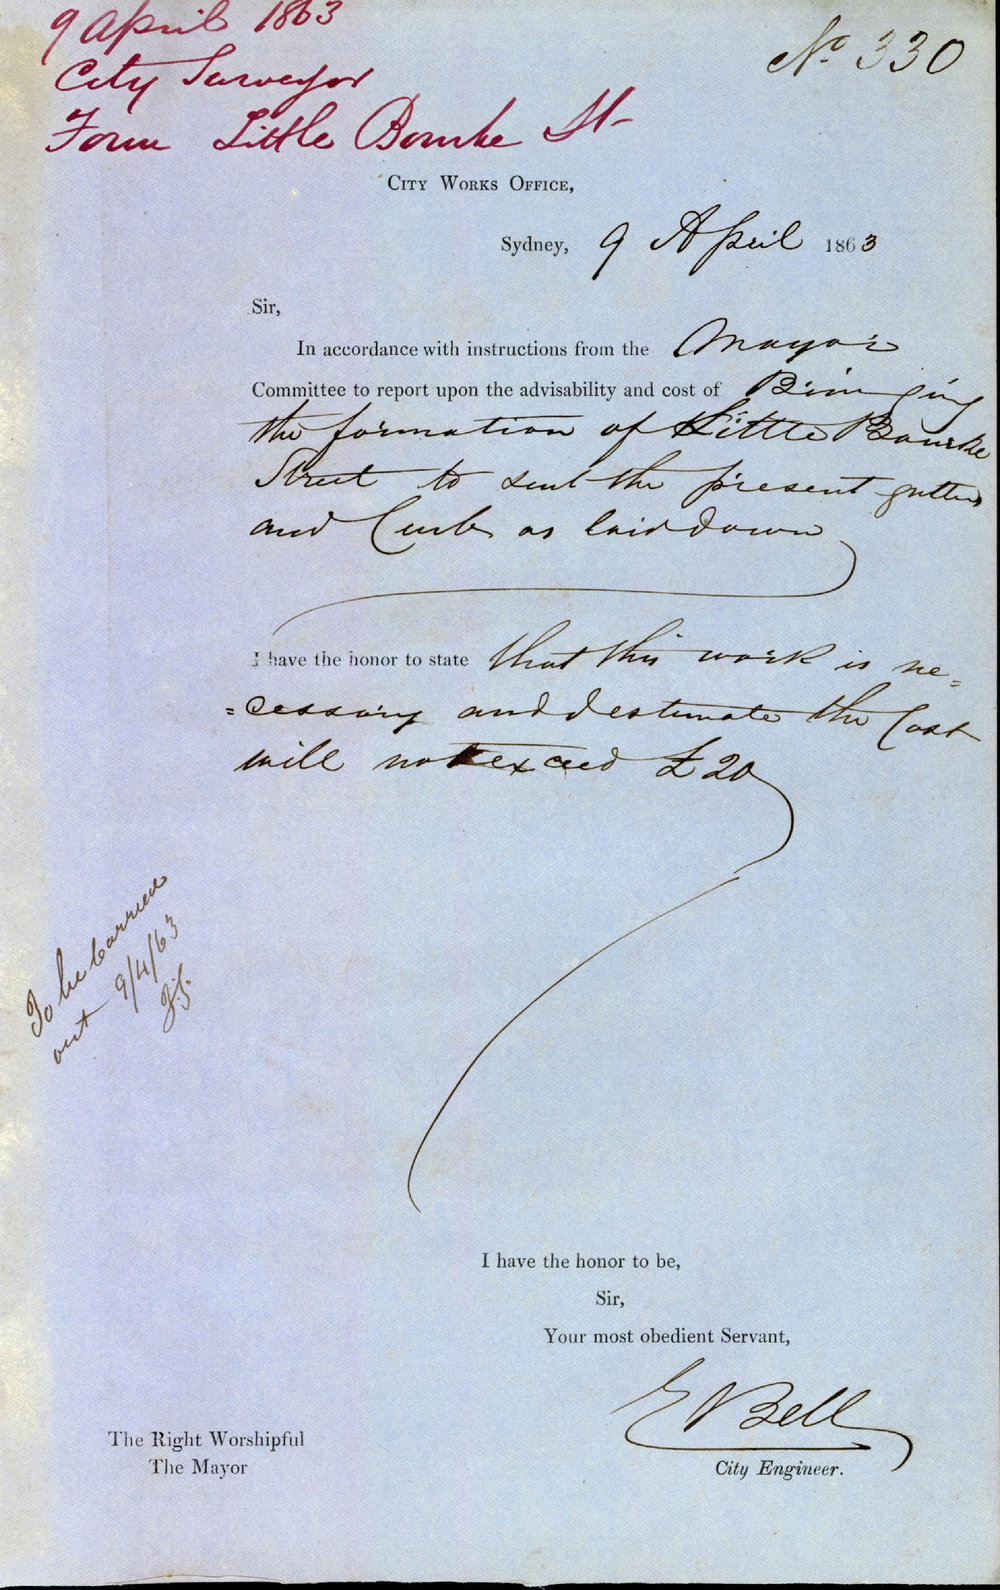 9 April 1863
City Surveyor
Form Little Bourke St
No 330
CITY WORKS OFFICE,
Sydney, 9 April 1863
Sir,
In accordance with instructions from the Mayor
Committee to report upon the advisability and cost of Bringing
the formation of Little Bourke
Street to suit the present gutters
and Curb as laid down
I have the honor to state that this work is ne=
=cessary and I estimate the Cost
will not exceed £20
To be Carried
out 9/4/63
I have the honor to be,
Sir,
Your most obedient Servant,
E Bell
City Engineer.
The Right Worshipful
The Mayor